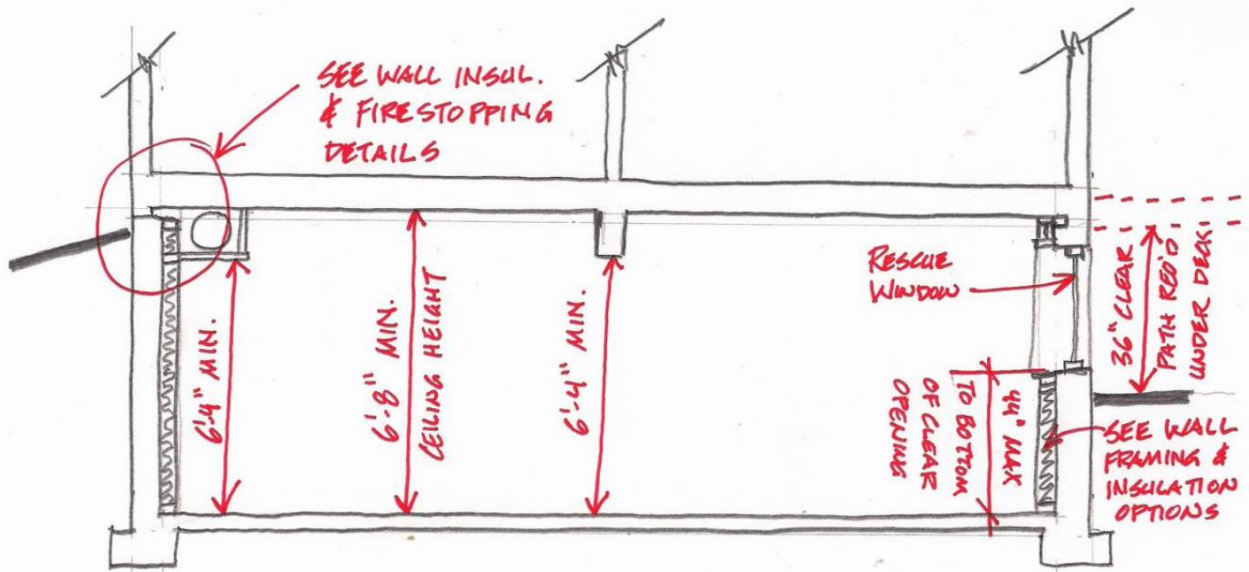 SEE WALL INSUL.
& FIRESTOPPING
DETAILS
6'-4" MIN.
6'-8" MIN.
CEILING HEIGHT
6'-4" MIN.
RESCUE
WINDOW
44" MAX
TO BOTTOM
OF CLEAR
OPENING
36" CLEAR
PATH REQ'D
UNDER DECK
SEE WALL
FRAMING &
INSULATION
OPTIONS